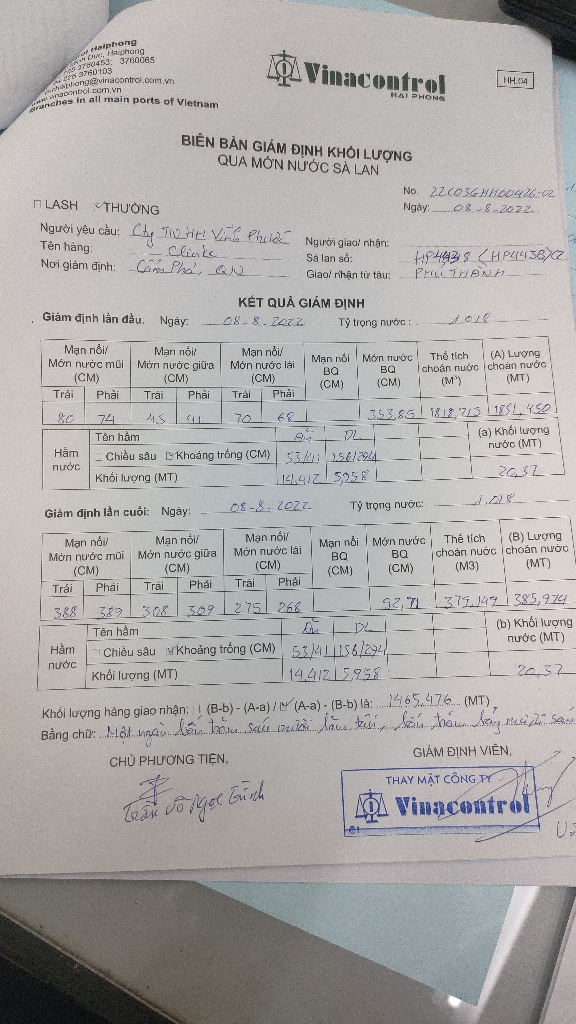 of Haiphong
Duc, Haiphong
3760453; 3760065
3760103
haiphong@vinacontrol.com.vn
www.vinacontrol.com.vn
Branches in all main ports of Vietnam
Vinacontrol
HAI PHONG
HH.04
BIÊN BẢN GIÁM ĐỊNH KHỐI LƯỢNG
QUA MỚN NƯỚC SÀ LAN
No. 22C03GHH00426-02
Ngày: 08-8-2022
LASH THƯỜNG
Người yêu cầu: Cty TNHH Vĩnh Phước Người giao/ nhận:
Tên hàng: Clinke Sà lan số: HP4438 (HP4438)02
Nơi giám định: Cẩm Phả, QN Giao/ nhận từ tàu: PHÚ THÀNH
KẾT QUẢ GIÁM ĐỊNH
Giám định lần đầu. Ngày: 08-8-2022 Tỷ trọng nước: 1,018
Mạn nổi/ Mớn nước mũi (CM) Mạn nổi/ Mớn nước giữa (CM) Mạn nổi/ Mớn nước lái (CM) Mạn nổi BQ (CM) Mớn nước BQ (CM) Thể tích choán nước (M³) (A) Lượng choán nước (MT)
Trái Phải Trái Phải Trái Phải
80 74 45 41 70 68 353,85 1818,713 1851,450
Hầm nước Tên hầm DL (a) Khối lượng nước (MT)
Chiều sâu Khoảng trống (CM) 53/41 156/294
Khối lượng (MT) 14,412 5,958 20,37
Giám định lần cuối: Ngày: 08-8-2022 Tỷ trọng nước: 1,018
Mạn nổi/ Mớn nước mũi (CM) Mạn nổi/ Mớn nước giữa (CM) Mạn nổi/ Mớn nước lái (CM) Mạn nổi BQ (CM) Mớn nước BQ (CM) Thể tích choán nước (M3) (B) Lượng choán nước (MT)
Trái Phải Trái Phải Trái Phải
388 389 308 309 275 268 92,71 379,149 385,974
Hầm nước Tên hầm DL (b) Khối lượng nước (MT)
Chiều sâu Khoảng trống (CM) 53/41 156/294
Khối lượng (MT) 14,412 5,958 20,37
Khối lượng hàng giao nhận: (B-b) - (A-a) / (A-a) - (B-b) là: 1465,476 (MT)
Bằng chữ: Một ngàn bốn trăm sáu mươi lăm tấn, bốn trăm bảy mươi sáu
CHỦ PHƯƠNG TIỆN, GIÁM ĐỊNH VIÊN,
THAY MẶT CÔNG TY
Vinacontrol
61
Trần Võ Ngọc Trình